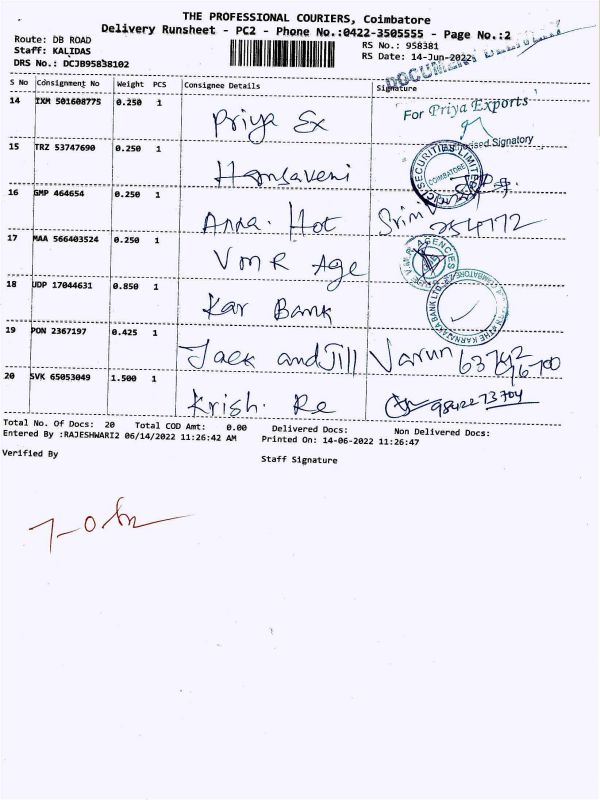 THE PROFESSIONAL COURIERS, Coimbatore
Delivery Runsheet - PC2 - Phone No.:0422-3505555 - Page No.:2
Route: DB ROAD
RS No.: 958381
Staff: KALIDAS
RS Date: 14-Jun-2022
DRS No.: DCJB95838102
DOCUMENT DELIVERY
S No Consignment No Weight PCS Consignee Details Signature
14 IXM 501608775 0.250 1 Priya Ex
For Priya Exports
Authorised Signatory
15 TRZ 53747690 0.250 1 Hamsaveni
SECURITIES LIMITED
COIMBATORE
16 GMP 464654 0.250 1 Anna. Hot
254772
17 MAA 566403524 0.250 1 VMR Age
AGENCIES
18 UDP 17044631 0.850 1 Kar Bank
THE KARNATAKA BANK LTD.
COIMBATORE
19 PON 2367197 0.425 1 Jack and Jill Varun 63742
16700
20 SVK 65053049 1.500 1 Krish. Re 9842273704
Total No. Of Docs: 20 Total COD Amt: 0.00 Delivered Docs: Non Delivered Docs:
Entered By :RAJESHWARI2 06/14/2022 11:26:42 AM Printed On: 14-06-2022 11:26:47
Verified By
Staff Signature